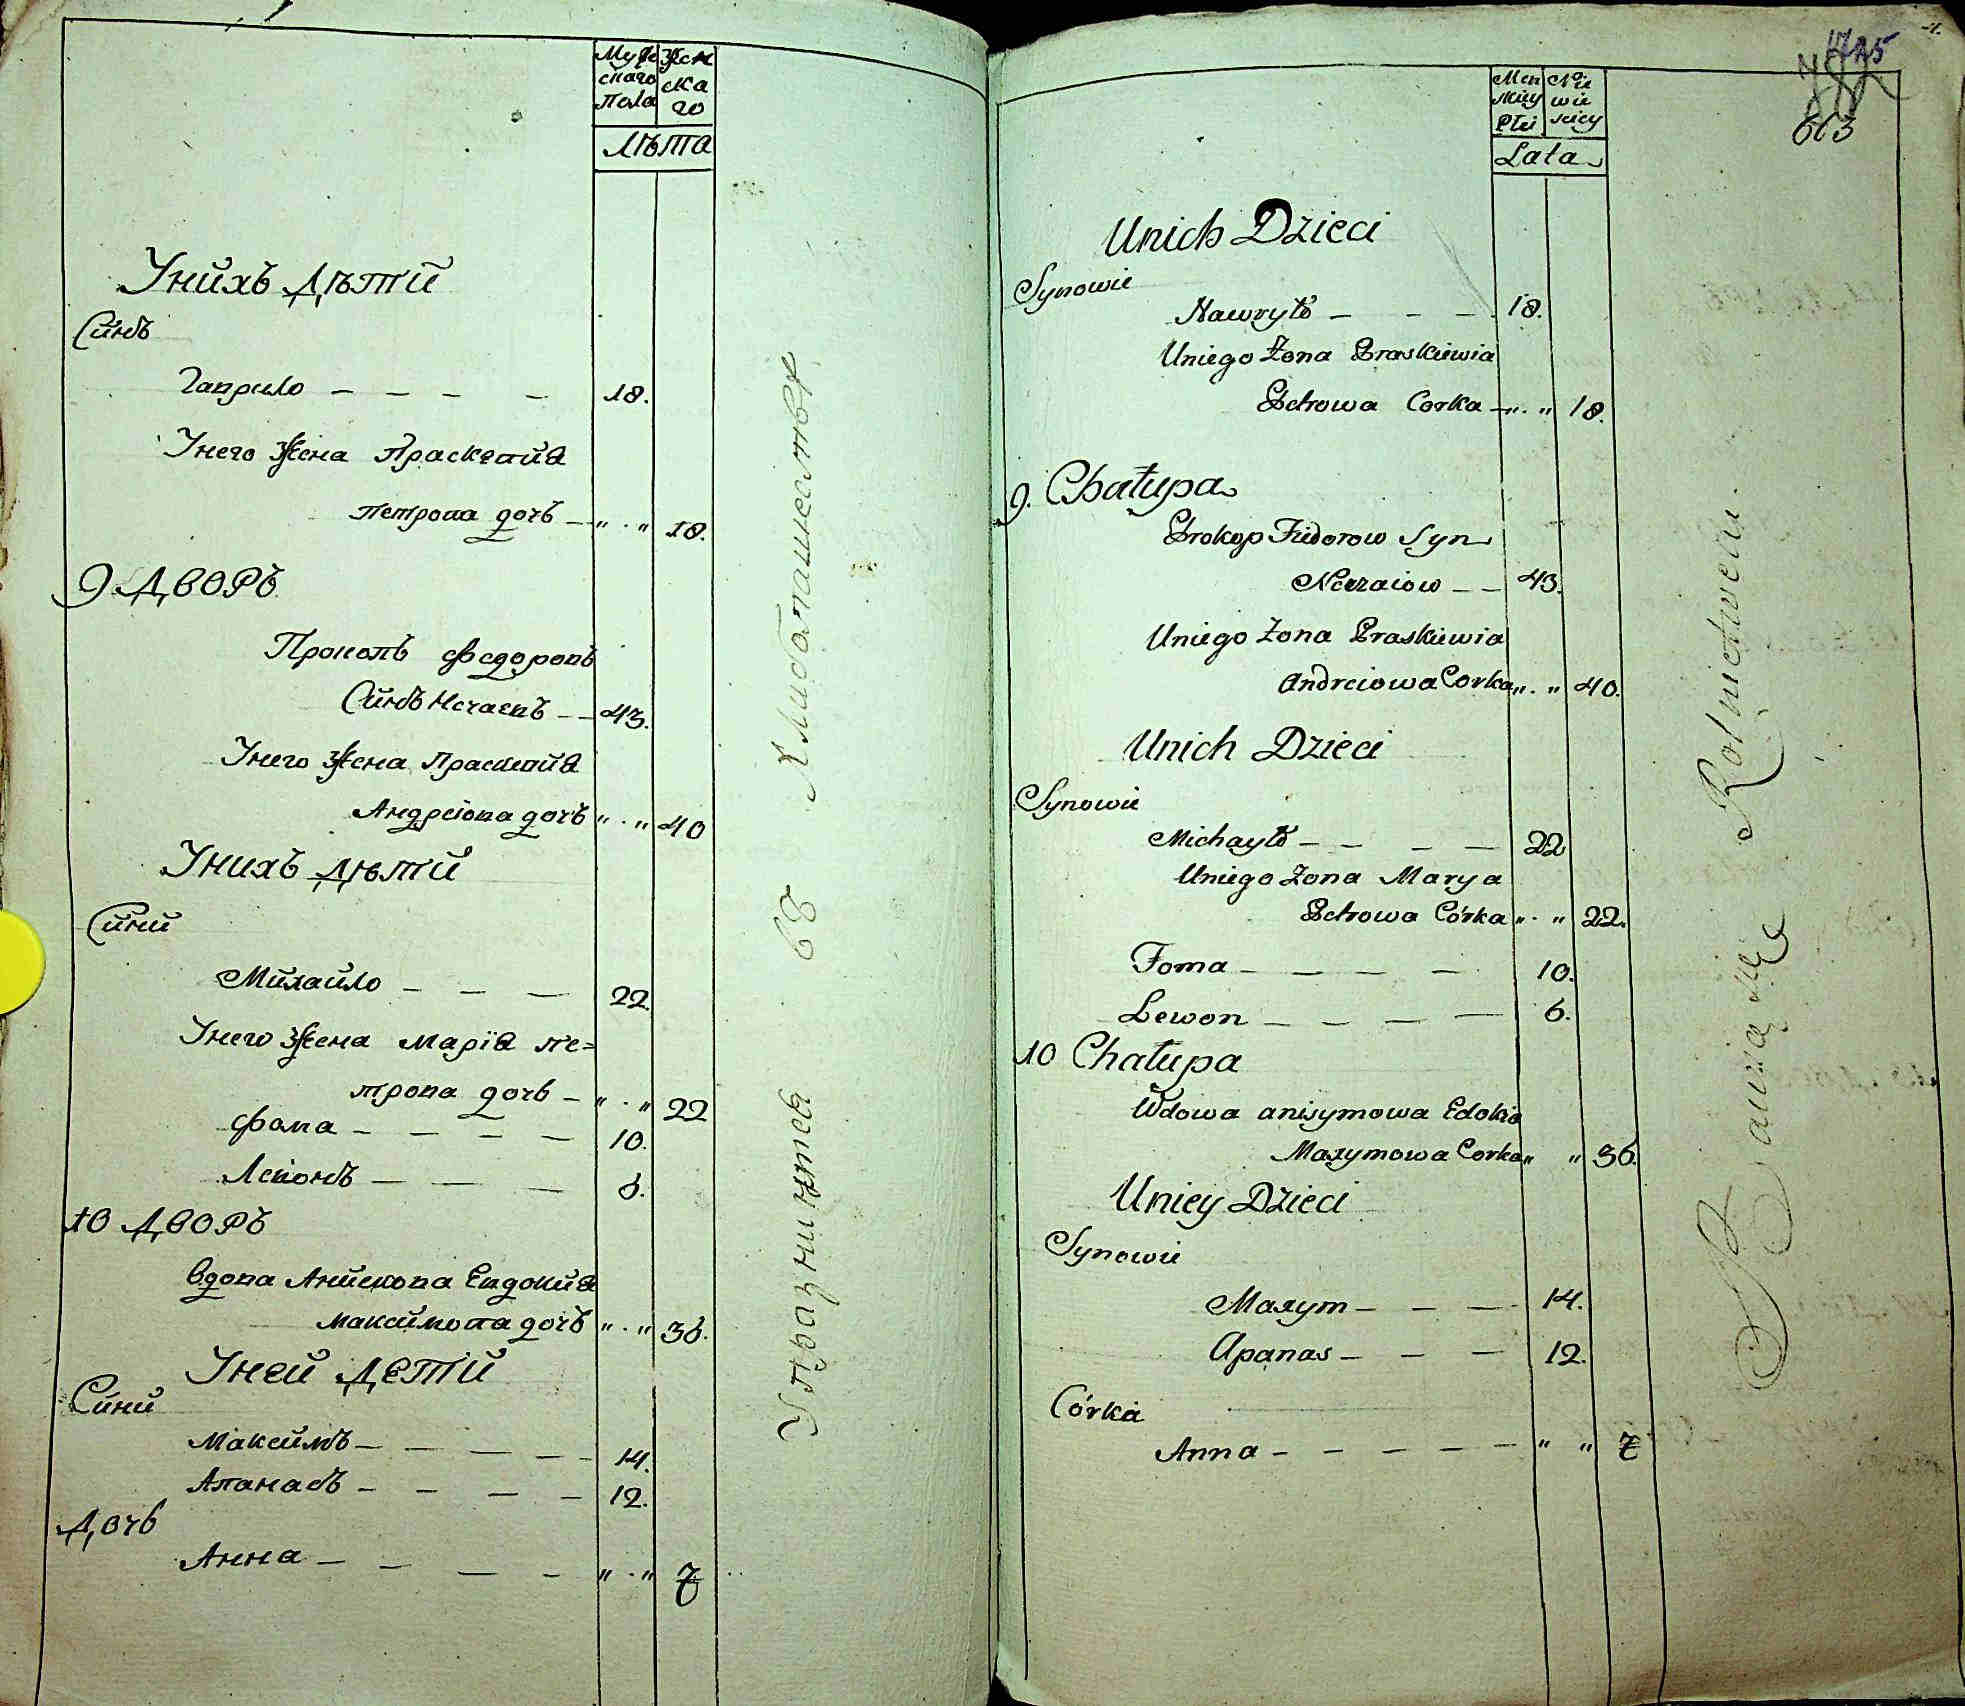 Мужескаго Пола
Женскаго
Лѣта
Унихъ Дѣтй
Синъ
Гаврило — — — — 18.
Унего Жена Праскевия
Петрова дочъ — „ . „ 18.
9 Дворъ
Прокопъ Федоровъ
Синъ Нечаевъ — — 43.
Унего Жена Праскевия
Андреіова дочъ „ . „ 40
Унихъ Дѣтй
Сини
Михайло — — — 22.
Унего Жена Марія Пе=
трова дочъ — „ . „ 22
Фома — — — — 10.
Левонъ — — — 6.
10 Дворъ
Вдова Анисмова Евдокия
Максимова дочъ „ . „ 36.
Уней Детй
Сини
Максимъ — — — — — 14.
Апанасъ — — — — 12.
Дочъ
Анна — — — — „ . „ 7
Упражняитса въ Хлибопашествѣ
4.
1725
613
Męskiey Płci
Niewieściey
Lata
Unich Dzieci
Synowie
Hawryło — — — — 18.
Uniego Żona Praskiewia
Petrowa Corka — „ . „ 18.
9. Chałupa
Prokop Fiedorow Syn
Neczaiow — — 43.
Uniego Żona Praskiewia
Andreiowa Corka „ . „ 40.
Unich Dzieci
Synowie
Michayło — — — — 22
Uniego Żona Marya
Petrowa Córka „ . „ 22.
Foma — — — — 10.
Lewon — — — — 6.
10 Chałupa
Wdowa anisymowa Edokia
Maxymowa Corka „ „ 36.
Uniey Dzieci
Synowie
Maxym — — — — 14.
Apanas — — — 12.
Córka
Anna — — — — — „ „ 7
Bawią się Rolnictwem.